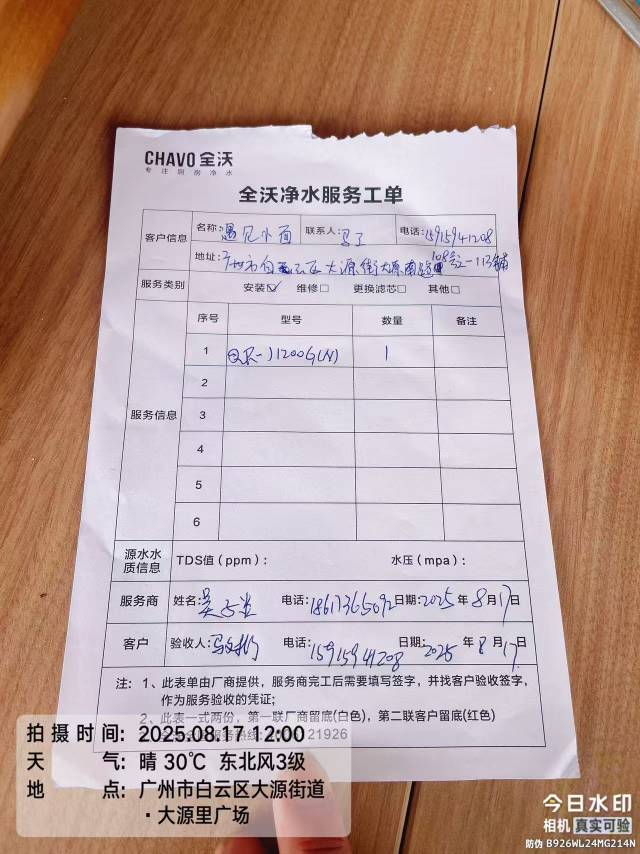 CHAVO 全沃
专注厨房净水
全沃净水服务工单
客户信息 名称: 遇见小面 联系人: 马 电话: 15915941208
地址: 广州市白云区大源街大源南路108号之一113铺
服务类别 安装☑ 维修□ 更换滤芯□ 其他□
服务信息
序号 型号 数量 备注
1 QR-J1200G(N) 1
2
3
4
5
6
源水水质信息 TDS值(ppm): 水压(mpa):
服务商 姓名: 吴 电话: 18617365092 日期: 2025年8月17日
客户 验收人: 电话: 15915941208 日期: 2025年8月17日
注: 1、此表单由厂商提供，服务商完工后需要填写签字，并找客户验收签字，
作为服务验收的凭证;
2、此表一式两份，第一联厂商留底(白色)，第二联客户留底(红色)
21926
拍摄时间: 2025.08.17 12:00
天气: 晴 30℃ 东北风3级
地点: 广州市白云区大源街道
·大源里广场
今日水印
相机 真实可验
防伪 B926WL24MG214N